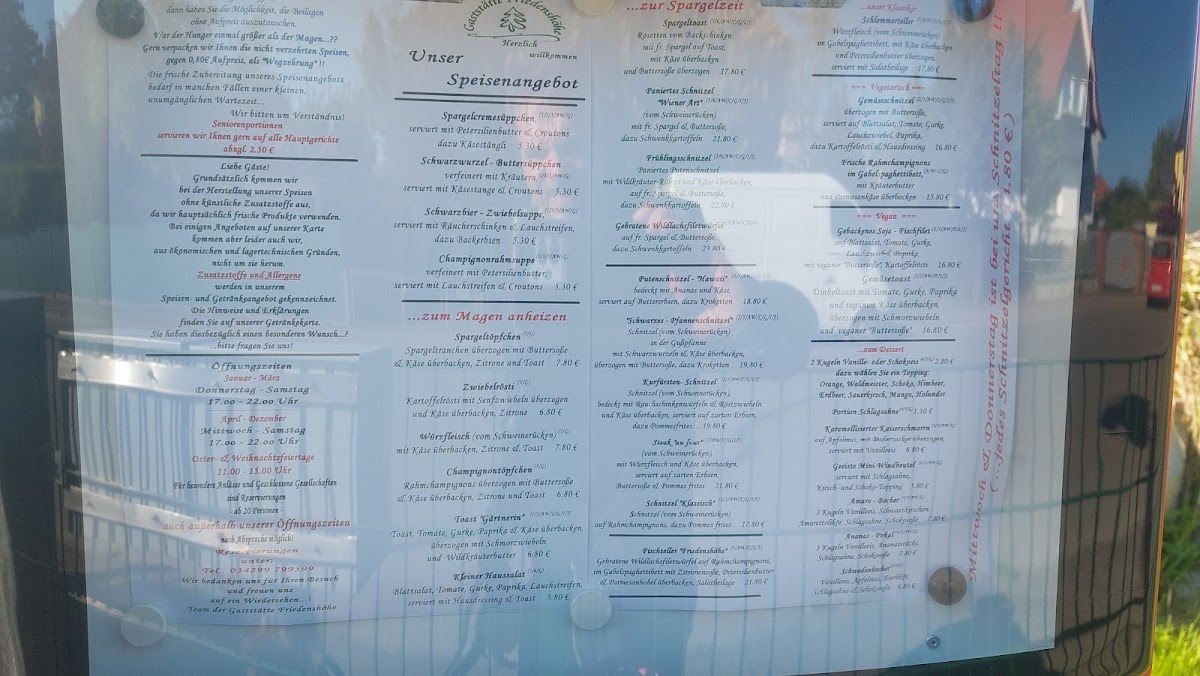 dann haben Sie die Möglichkeit, die Beilagen
ohne Aufpreis auszutauschen.
War der Hunger einmal größer als der Magen...??
Gern verpacken wir Ihnen die nicht verzehrten Speisen,
gegen 0,80€ Aufpreis, als "Wegzehrung" !!
Die frische Zubereitung unseres Speisenangebots
bedarf in manchen Fällen einer kleinen,
unumgänglichen Wartezeit...
Wir bitten um Verständnis!
Seniorenportionen
servieren wir Ihnen gern auf alle Hauptgerichte
abzgl. 2.50 €
Liebe Gäste!
Grundsätzlich kommen wir
bei der Herstellung unserer Speisen
ohne künstliche Zusatzstoffe aus,
da wir hauptsächlich frische Produkte verwenden.
Bei einigen Angeboten auf unserer Karte
kommen aber leider auch wir,
aus ökonomischen und lagertechnischen Gründen,
nicht um sie herum.
Zusatzstoffe und Allergene
werden in unserem
Speisen- und Getränkeangebot gekennzeichnet.
Die Hinweise und Erklärungen
finden Sie auf unserer Getränkekarte.
Sie haben diesbezüglich einen besonderen Wunsch...?
...bitte fragen Sie uns!
Öffnungszeiten
Januar - März
Donnerstag - Samstag
17.00 - 22.00 Uhr
April - Dezember
Mittwoch - Samstag
17.00 - 22.00 Uhr
Oster- & Weihnachtsfeiertage
11.00 - 15.00 Uhr
Für besondere Anlässe und Geschlossene Gesellschaften
sind Reservierungen
- ab 20 Personen -
auch außerhalb unserer Öffnungszeiten
nach Absprache möglich!
Reservierungen
unter:
Tel. 034299 799599
Wir bedanken uns für Ihren Besuch
und freuen uns
auf ein Wiedersehen...!
Team der Gaststätte Friedenshöhe
Gaststätte Friedenshöhe
Herzlich
willkommen
Unser
Speisenangebot
Spargelcremesüppchen
serviert mit Petersilienbutter & Croutons
dazu Käsestängli 5.30 €
Schwarzwurzel - Buttersüppchen
verfeinert mit Kräutern,
serviert mit Käsestange & Croutons 5.30 €
Schwarzbier - Zwiebelsuppe,
serviert mit Räucherschinken & Lauchstreifen,
dazu Backerbsen 5.30 €
Championrahmsuppe
verfeinert mit Petersilienbutter,
serviert mit Lauchstreifen & Croutons 5.30 €
...zum Magen anheizen
Spargeltöpfchen
Spargeltranchen überzogen mit Buttersoße
& Käse überbacken, Zitrone und Toast 7.80 €
Zwiebelrösti
Kartoffelrösti mit Senfzwiebeln überzogen
und Käse überbacken, Zitrone 6.80 €
Würzfleisch (vom Schweinerücken)
mit Käse überbacken, Zitrone & Toast 7.80 €
Champignontöpfchen
Rahmchampignons überzogen mit Buttersoße
& Käse überbacken, Zitrone und Toast 6.80 €
Toast "Gärtnerin"
Toast, Tomate, Gurke, Paprika & Käse überbacken,
überzogen mit Schmorzwiebeln
und Wildkräuterbutter 6.80 €
Kleiner Haussalat
Blattsalat, Tomate, Gurke, Paprika, Lauchstreifen,
serviert mit Hausdressing & Toast 5.80 €
...zur Spargelzeit
Spargeltoast
Rosetten vom Backschinken
mit fr. Spargel auf Toast,
mit Käse überbacken
und Buttersoße überzogen 17.80 €
Paniertes Schnitzel
"Wiener Art"
(vom Schweinerücken)
mit fr. Spargel & Buttersoße,
dazu Schwenkkartoffeln 21.80 €
Frühlingsschnitzel
Paniertes Putenschnitzel
mit Wildkräuter-Rührei und Käse überbacken,
auf fr. Spargel & Buttersoße,
dazu Schwenkkartoffeln 22.80 €
Gebratene Wildlachsfiletwürfel
auf fr. Spargel & Buttersoße,
dazu Schwenkkartoffeln 23.80 €
Putenschnitzel - "Hawaii"
bedeckt mit Ananas und Käse,
serviert auf Buttererbsen, dazu Kroketten 18.80 €
"Schwarzes - Pfannenschnitzel"
Schnitzel (vom Schweinerücken)
in der Gußpfanne
mit Schwarzwurzeln & Käse überbacken,
überzogen mit Buttersoße, dazu Kroketten 19.80 €
Kurfürsten- Schnitzel
Schnitzel (vom Schweinerücken),
bedeckt mit Rauchschinkenwürfeln & Röstzwiebeln
und Käse überbacken, serviert auf zarten Erbsen,
dazu Pommesfrites.....19.80 €
Steak "au four"
(vom Schweinerücken),
mit Würzfleisch und Käse überbacken,
serviert auf zarten Erbsen,
Buttersoße & Pommes frites 21.80 €
Schnitzel "Klassisch"
Schnitzel (vom Schweinerücken)
auf Rahmchampignons, dazu Pommes frites 17.80 €
Fischteller "Friedenshöhe"
Gebratene Wildlachsfiletwürfel auf Rahmchampignons,
im Gabelspaghettibett mit Zitronensoße, Petersilienbutter
& Parmesanhobel überbacken, Salatbeilage 21.80 €
...unser Klassiker
Schlemmerteller
Würzfleisch (vom Schweinerücken)
im Gabelspaghettibett, mit Käse überbacken
und Petersilienbutter überzogen,
serviert mit Salatbeilage 17,80 €
=== Vegetarisch ===
Gemüseschnitzel
überzogen mit Buttersoße,
serviert auf Blattsalat, Tomate, Gurke,
Lauchzwiebel, Paprika,
dazu Kartoffelrösti & Hausdressing 16.80 €
Frische Rahmchampignons
im Gabelspaghettibett,
mit Kräuterbutter
und Parmesankäse überbacken 15.80 €
=== Vegan ===
Gebackenes Soja - Fischfilet
auf Blattsalat, Tomate, Gurke,
Lauchzwiebel, Paprika,
mit veganer "Buttersoße", Kartoffelrösti 16.80 €
Gemüsetoast
Dinkeltoast mit Tomate, Gurke, Paprika
und veganem Käse überbacken,
überzogen mit Schmorzwiebeln
und veganer "Buttersoße" 16.80 €
...zum Dessert
2 Kugeln Vanille- oder Schokoeis 2.80 €
dazu wählen Sie ein Topping:
Orange, Waldmeister, Schoko, Himbeer,
Erdbeer, Sauerkirsch, Mango, Holunder
Portion Schlagsahne 1.30 €
Karamellisierter Kaiserschmarrn
auf Apfelmus, mit Puderzucker überzogen,
serviert mit Vanilleeis 8.80 €
Geeiste Mini-Windbeutel
serviert mit Schlagsahne,
Kirsch- und Schoko-Topping 5.80 €
Amaro - Becher
3 Kugeln Vanilleeis, Schwarzkirschen,
Amarettolikör, Schlagsahne, Schokosoße 7.80 €
Ananas - Pokal
3 Kugeln Vanilleeis, Ananasstücke,
Schlagsahne, Schokosoße 7.80 €
Schwedenbecher
Vanilleeis, Apfelmus, Eierlikör,
Schlagsahne & Schokosoße 6.80 €
Mittwoch & Donnerstag ist bei uns Schnitzeltag !!
(...jedes Schnitzelgericht
.80 €)